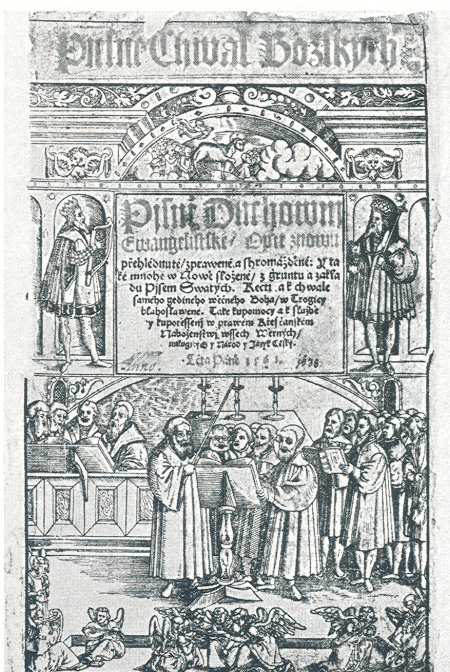 Pijsně Chwal Božskych
Pijsně Duchownij
Ewangelistské / Opět znowu
přehlédnuté / zprawené a shromážděné: Y ta
ké mnohé w Nowě složené / z gruntu a zákla
du Pijsem Swatých. Kecti a k chwale
samého gediného wěčného Boha / w Trogicy
blahoslawené. Také kupomocy a k službě
y kupotěssenij w prawém Křesťanském
Náboženstwij wssech Wěrných /
milugijcých Národ y Jazyk Cžský.
Léta Páně 1561.